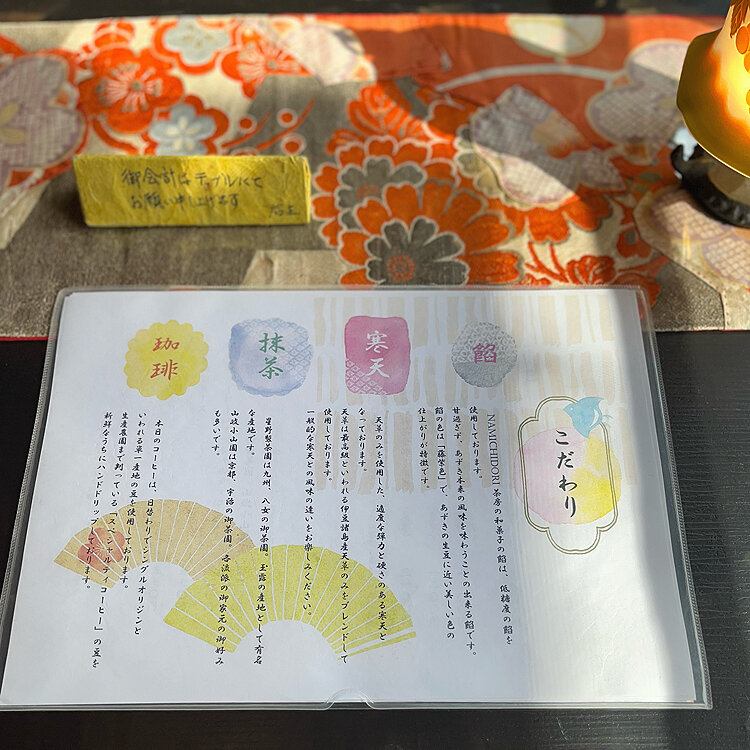 御会計はテーブルにて
お願い申し上げます
店主
こだわり
餡
NAMICHIDORI 茶房の和菓子の餡は、低糖度の餡を
使用しております。
甘過ぎず、あずき本来の風味を味わうことの出来る餡です。
餡の色は「藤紫色」で、あずきの生豆に近い美しい色の
仕上がりが特徴です。
寒天
天草のみを使用した、適度な弾力と硬さのある寒天と
なっております。
天草は最高級といわれる伊豆諸島産天草のみをブレンドして
使用しております。
一般的な寒天との風味の違いをお楽しみください。
抹茶
星野製茶園は九州、八女の御茶園。玉露の産地として有名
な産地です。
山政小山園は京都、宇治の御茶園。各流派の御家元の御好み
も多いです。
珈琲
本日のコーヒーは、日替わりでシングルオリジンと
いわれる単一産地の豆を使用しております。
生産農園まで判っている「スペシャルティコーヒー」の豆を
新鮮なうちにハンドドリップしております。